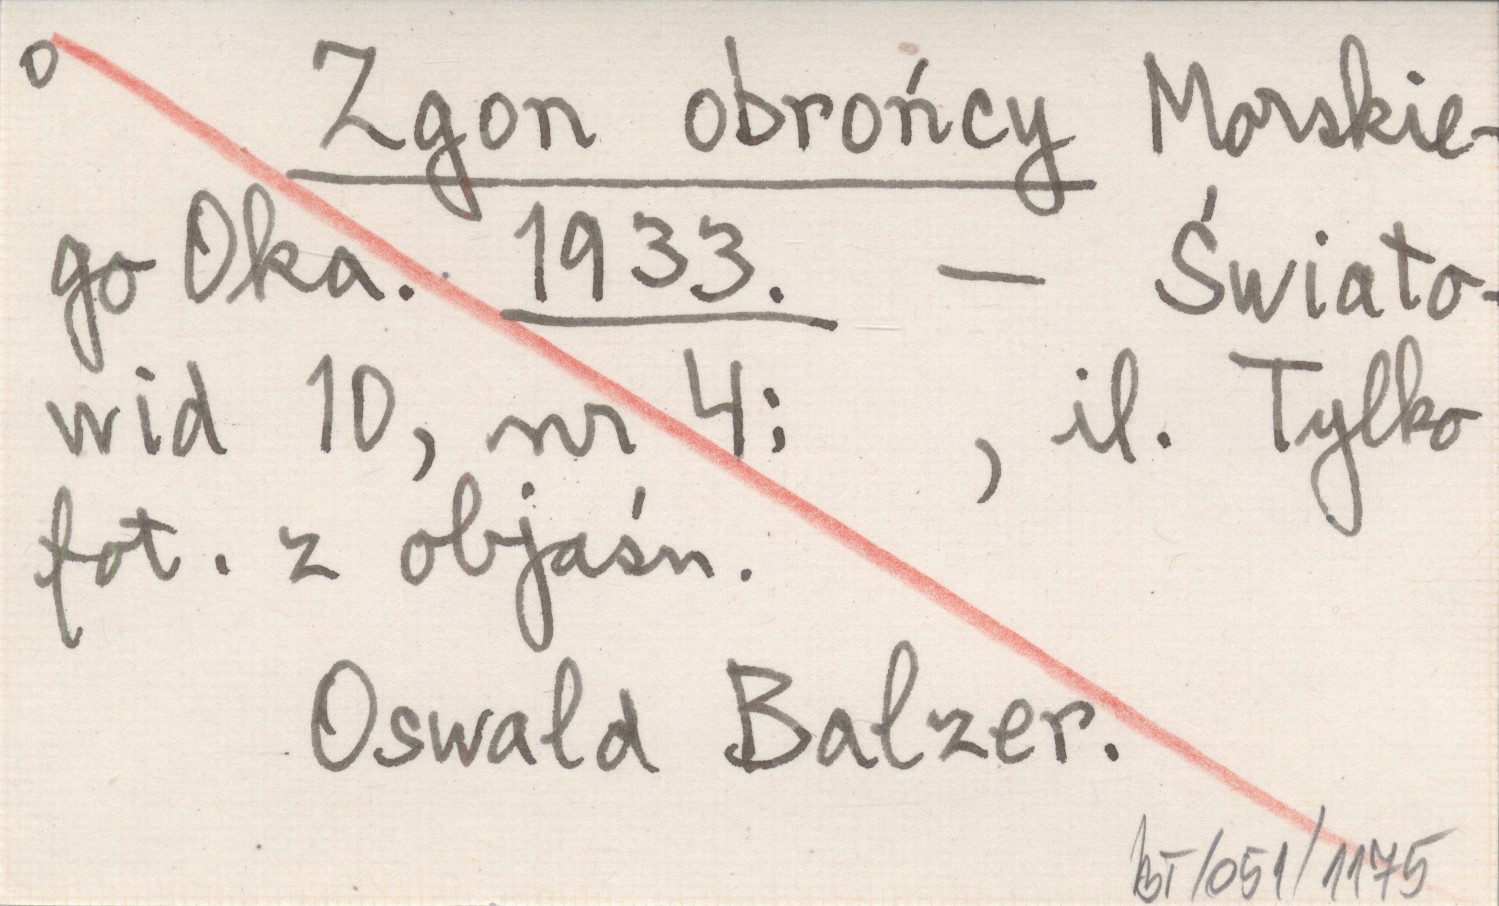 o Zgon obrońcy Morskie-
go Oka. 1933. — Świato-
wid 10, nr 4: , il. Tylko
fot. z objaśn.
Oswald Balzer.
BT/051/1175